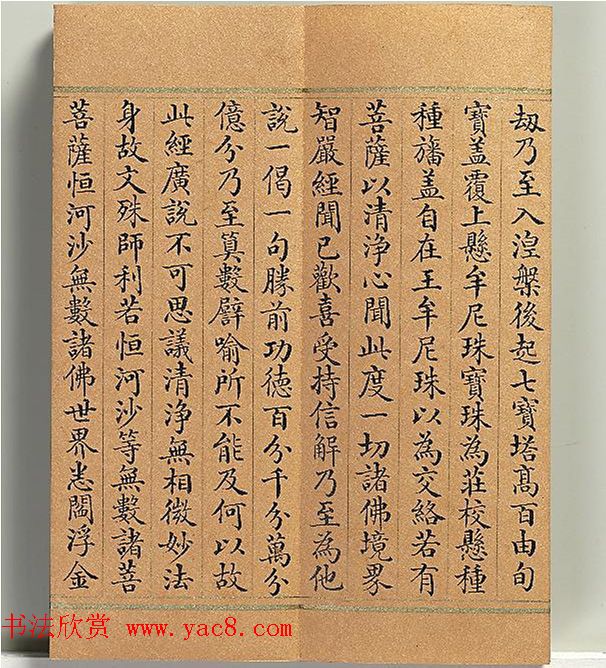 劫乃至入涅槃後起七寶塔髙百由旬
寶盖覆上懸牟尼珠寶珠為莊校懸種
種旛盖自在王牟尼珠以為交絡若有
菩薩以清淨心聞此度一切諸佛境界
智嚴經聞已歡喜受持信解乃至為他
説一偈一句勝前功徳百分千分萬分
億分乃至筭數譬喻所不能及何以故
此經廣説不可思議清淨無相微妙法
身故文殊師利若恒河沙等無數諸菩
菩薩恒河沙無數諸佛世界悉閻浮金
书法欣赏 www.yac8.com